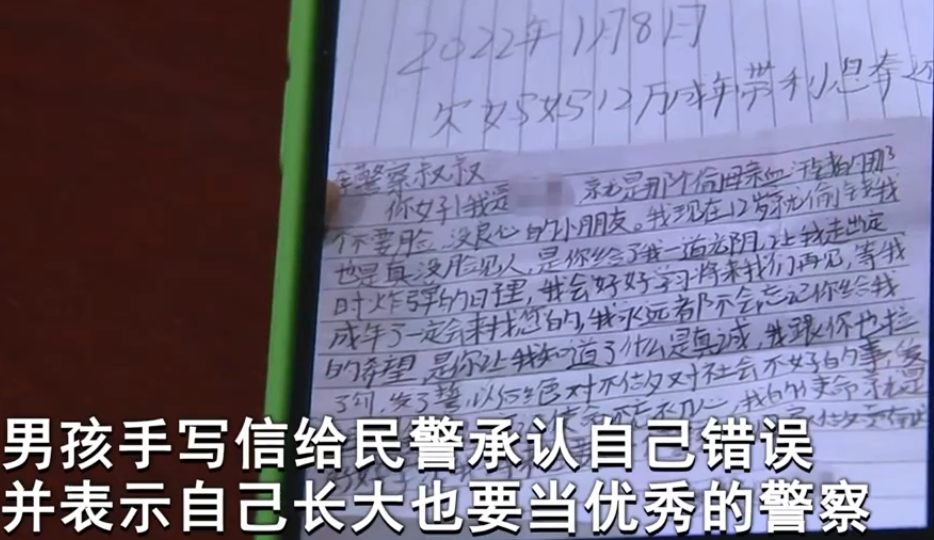 2022年1月8日
欠妈妈12万成年带利息奉还
警察叔叔
你好!我是 就是那个偷母亲血汗钱的那
个不要脸没良心的小朋友。我现在12岁就偷钱我
也是真没脸见人,是你给了我一道光阴,让我走出定
时炸弹的日理,我会好好学习将来我们再见,等我
成年了一定会来找您的,我永远都不会忘记你给我
的希望是你让我知道了什么是真诚,我跟你也拉
了勾,发了誓,以后绝对不做对社会不好的事,
我的使命就是
男孩手写信给民警承认自己错误
并表示自己长大也要当优秀的警察